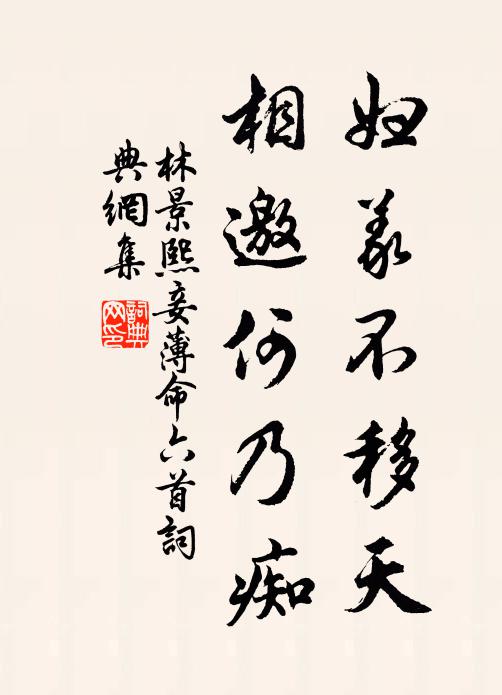 妇义不移天
相邀何乃痴
林景熙妾薄命六首詞
典網集
詞典
网印